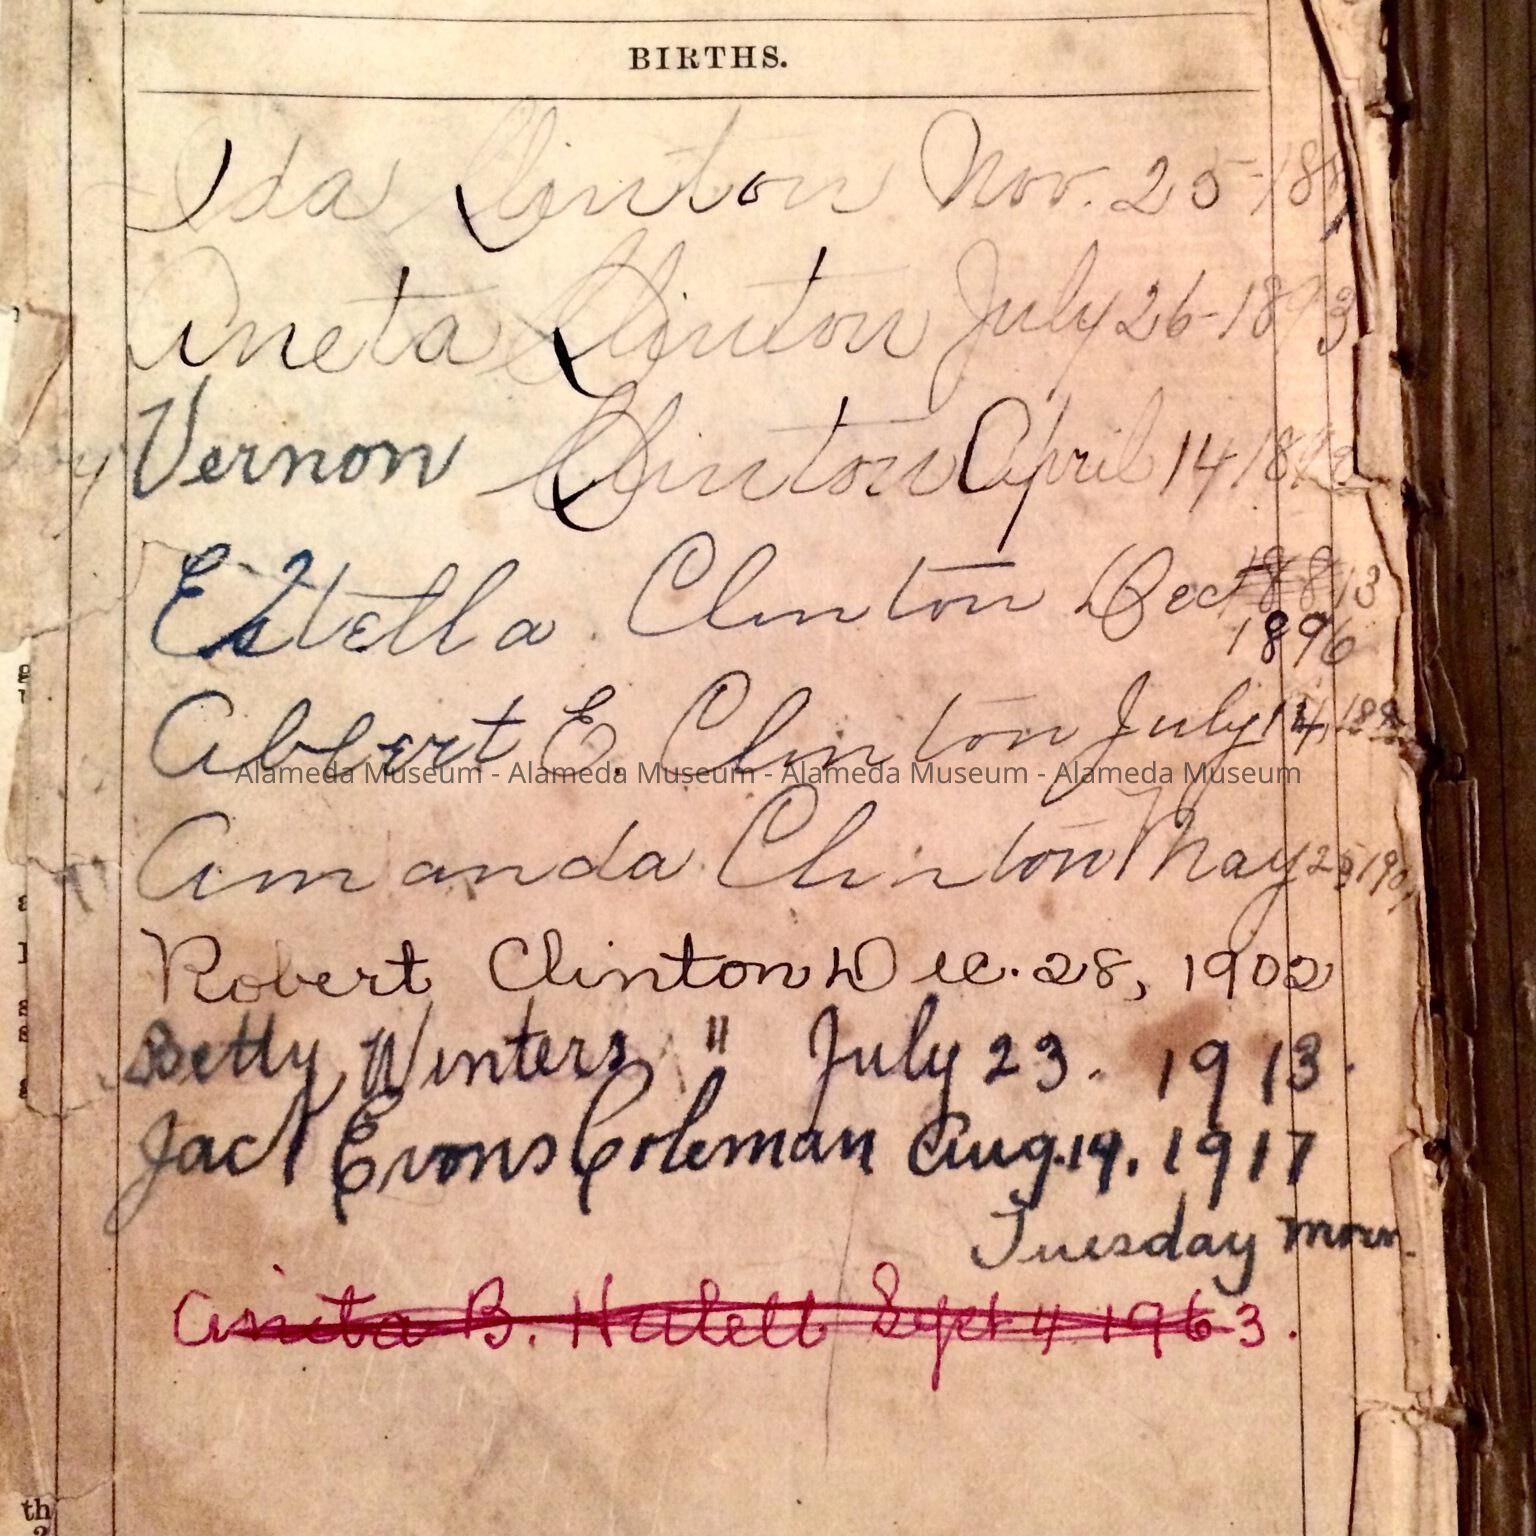 BIRTHS.
Ida Clinton Nov. 25-18
Aneta Clinton July 26-1893
Vernon Clinton April 14 18
Estella Clinton Dec 13
1896
Albert E. Clinton July 14, 189
Amanda Clinton May 190
Robert Clinton Dec. 28, 1902
Betty Winters " July 23. 1913.
Jack Evons Coleman Aug. 14. 1917
Tuesday morn.
Anita B. Halett Sept 4 1963.
Alameda Museum - Alameda Museum - Alameda Museum - Alameda Museum
th